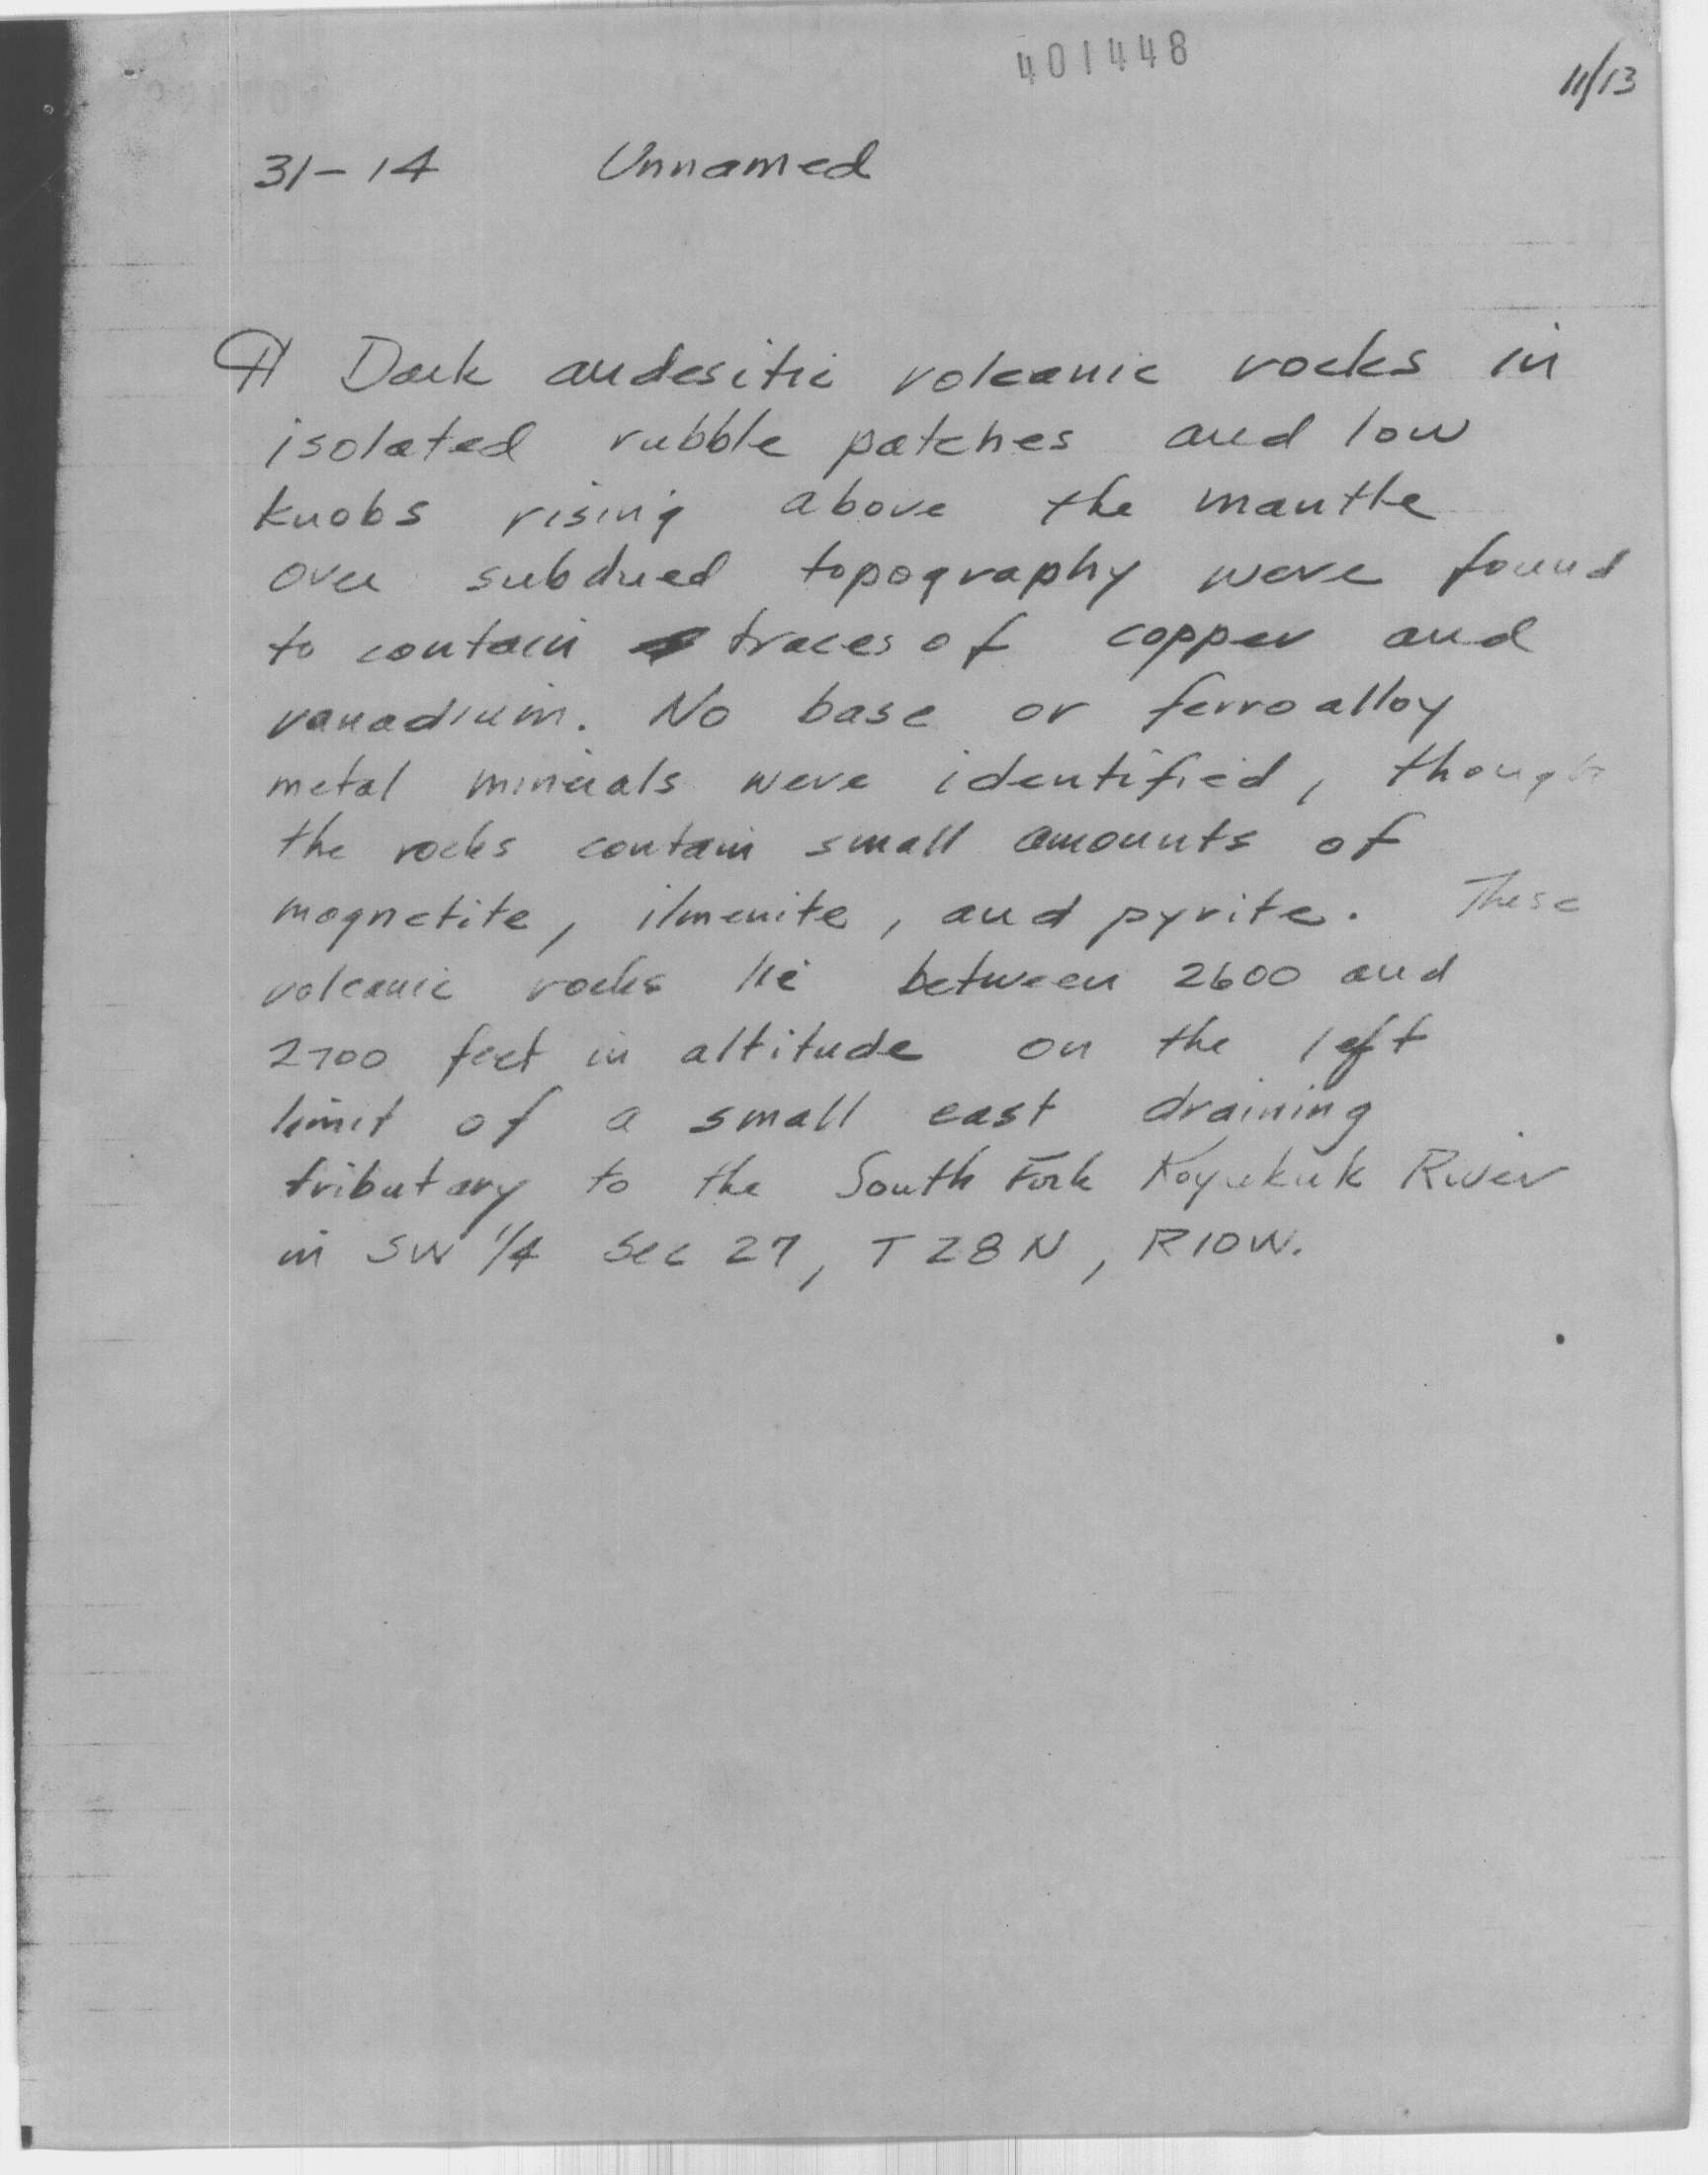 401448
11/13
31-14 Unnamed
¶ Dark andesitic volcanic rocks in
isolated rubble patches and low
knobs rising above the mantle
over subdued topography were found
to contain traces of copper and
vanadium. No base or ferroalloy
metal minerals were identified, though
the rocks contain small amounts of
magnetite, ilmenite, and pyrite. These
volcanic rocks lie between 2600 and
2700 feet in altitude on the left
limit of a small east draining
tributary to the South Fork Koyukuk River
in SW 1/4 Sec 27, T28N, R10W.